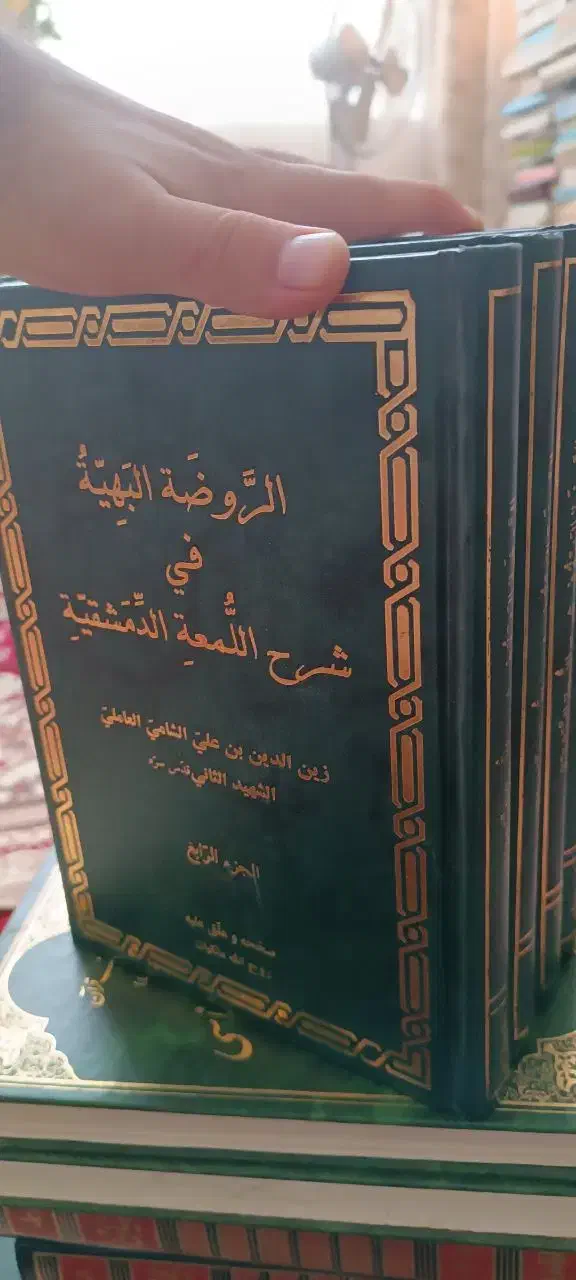 الرَّوضَة البَهِيّةُ
في
شرح اللُّمعةِ الدِّمَشقيَّةِ
زين الدين بن علي الشامي العاملي
الشهيد الثاني قدّس سرّه
الجزء الرّابع
صحّحه و علّق عليه
روح الله ملكيان